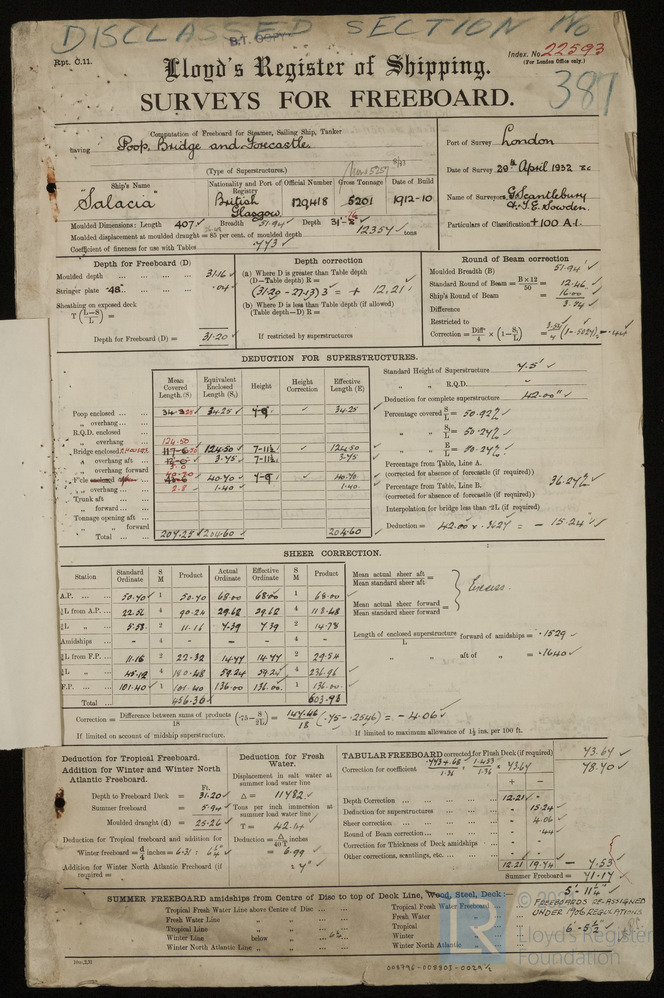 DISCLASSED SECTION No
B.T. COPY
Rpt. C.11.
Index. No. 22593
(For London Office only.)
Lloyd's Register of Shipping.
387
SURVEYS FOR FREEBOARD.
Computation of Freeboard for Steamer, Sailing Ship, Tanker
having Poop, Bridge and Forecastle.
(Type of Superstructures.)
Port of Survey London
Date of Survey 29th April 1932
Name of Surveyors G. Scantlebury
& J.E. Dowden.
Particulars of Classification +100 A.1.
Ship's Name
"Salacia"
Nationality and Port of Registry
British
Glasgow
Official Number
129418
Gross Tonnage
5201
Date of Build
1912-10
Moulded Dimensions: Length 407 Breadth 51.94 Depth
Moulded displacement at moulded draught = 85 per cent. of moulded depth 12357 tons
Coefficient of fineness for use with Tables .773
Depth for Freeboard (D)
Moulded depth 31.16
Stringer plate .48" .04
Sheathing on exposed deck
T (L-S/L) =
Depth for Freeboard (D) = 31.20
Depth correction
(a) Where D is greater than Table depth
(D—Table depth) R =
(31.20 - 27.13) 3 = + 12.21
(b) Where D is less than Table depth (if allowed)
(Table depth—D) R =
If restricted by superstructures
Round of Beam correction
Moulded Breadth (B) 51.94'
Standard Round of Beam = B×12/50 = 12.46
Ship's Round of Beam = 16.00
Difference 3.54
Restricted to
Correction = Diff/4 × (1 - S₁/L) = 3.54/4 (1-.5027) = .44
DEDUCTION FOR SUPERSTRUCTURES.
Mean Covered Length (S) Equivalent Enclosed Length (S₁) Height Height Correction Effective Length (E)
Poop enclosed 34.25 34.25 7-9 34.25
„ overhang
R.Q.D. enclosed
„ overhang
Bridge enclosed 124.50 124.50 7-11½ 124.50
„ overhang aft 3.75 7-11½ 3.75
„ overhang forward
F'cle enclosed 40.70 40.70 7-9 40.70
„ overhang 2.8 1.40 1.40
Trunk aft
„ forward
Tonnage opening aft
„ „ forward
Total 207.25 204.60 204.60
Standard Height of Superstructure 7.5'
„ „ R.Q.D. -
Deduction for complete superstructure 42.00"
Percentage covered S/L = 50.92%
„ „ S₁/L = 50.27%
„ „ E/L = 50.27%
Percentage from Table, Line A.
(corrected for absence of forecastle (if required))
Percentage from Table, Line B. 36.27%
(corrected for absence of forecastle (if required))
Interpolation for bridge less than ·2L (if required)
Deduction = 42.00 x .3627 = - 15.24
SHEER CORRECTION.
Station Standard Ordinate S M Product Actual Ordinate Effective Ordinate S M Product
A.P. 50.70 1 50.70 68.00 68.00 1 68.00
⅙L from A.P. 22.56 4 90.24 29.62 29.62 4 118.48
⅓L „ 5.58 2 11.16 7.39 7.39 2 14.78
Amidships - 4 - - - 4 -
⅓L from F.P. 11.16 2 22.32 14.77 14.77 2 29.54
⅙L „ 45.12 4 180.48 59.24 59.24 4 236.96
F.P. 101.40 1 101.40 136.00 136.00 1 136.00
Total 456.30 603.76
Mean actual sheer aft
Mean standard sheer aft =
Mean actual sheer forward
Mean standard sheer forward =
Excess.
Length of enclosed superstructure/L forward of amidships = .1529
„ „ aft of „ = .1640
Correction = Difference between sums of products/18 (·75 - S/2L) = 147.46/18 (.75 - .2546) = - 4.06
If limited on account of midship superstructure.
If limited to maximum allowance of 1½ ins. per 100 ft.
Deduction for Tropical Freeboard.
Addition for Winter and Winter North Atlantic Freeboard.
Ft.
Depth to Freeboard Deck = 31.20
Summer freeboard = 5.94
Moulded draught (d) = 25.26
Deduction for Tropical freeboard and addition for
Winter freeboard = d/4 inches = 6.31
Addition for Winter North Atlantic Freeboard (if required) =
Deduction for Fresh Water.
Displacement in salt water at summer load water line
Δ = 11782
Tons per inch immersion at summer load water line
T = 42.14
Deduction = Δ/40T inches
= 6.99
7"
TABULAR FREEBOARD corrected for Flush Deck (if required) 73.67
Correction for coefficient .773+.68/1.36 = 1.453/1.36 x 73.67 78.70
+ -
Depth Correction 12.21 -
Deduction for superstructures - 15.24
Sheer correction - 4.06
Round of Beam correction - .44
Correction for Thickness of Deck amidships - -
Other corrections, scantlings, etc. - -
12.21 19.74 - 7.53
Summer Freeboard = 71.17
5'-11¼"
SUMMER FREEBOARD amidships from Centre of Disc to top of Deck Line, Wood, Steel, Deck :—
Tropical Fresh Water Line above Centre of Disc
Fresh Water Line „ „
Tropical Line „ „
Winter Line below „ „
Winter North Atlantic Line „ „
Tropical Fresh Water Freeboard
Fresh Water „
Tropical „
Winter „
Winter North Atlantic „
FREEBOARDS RE-ASSIGNED
UNDER 1906 REGULATIONS
6 - 5½
Lloyd's Register
Foundation
008796-008808-0029½